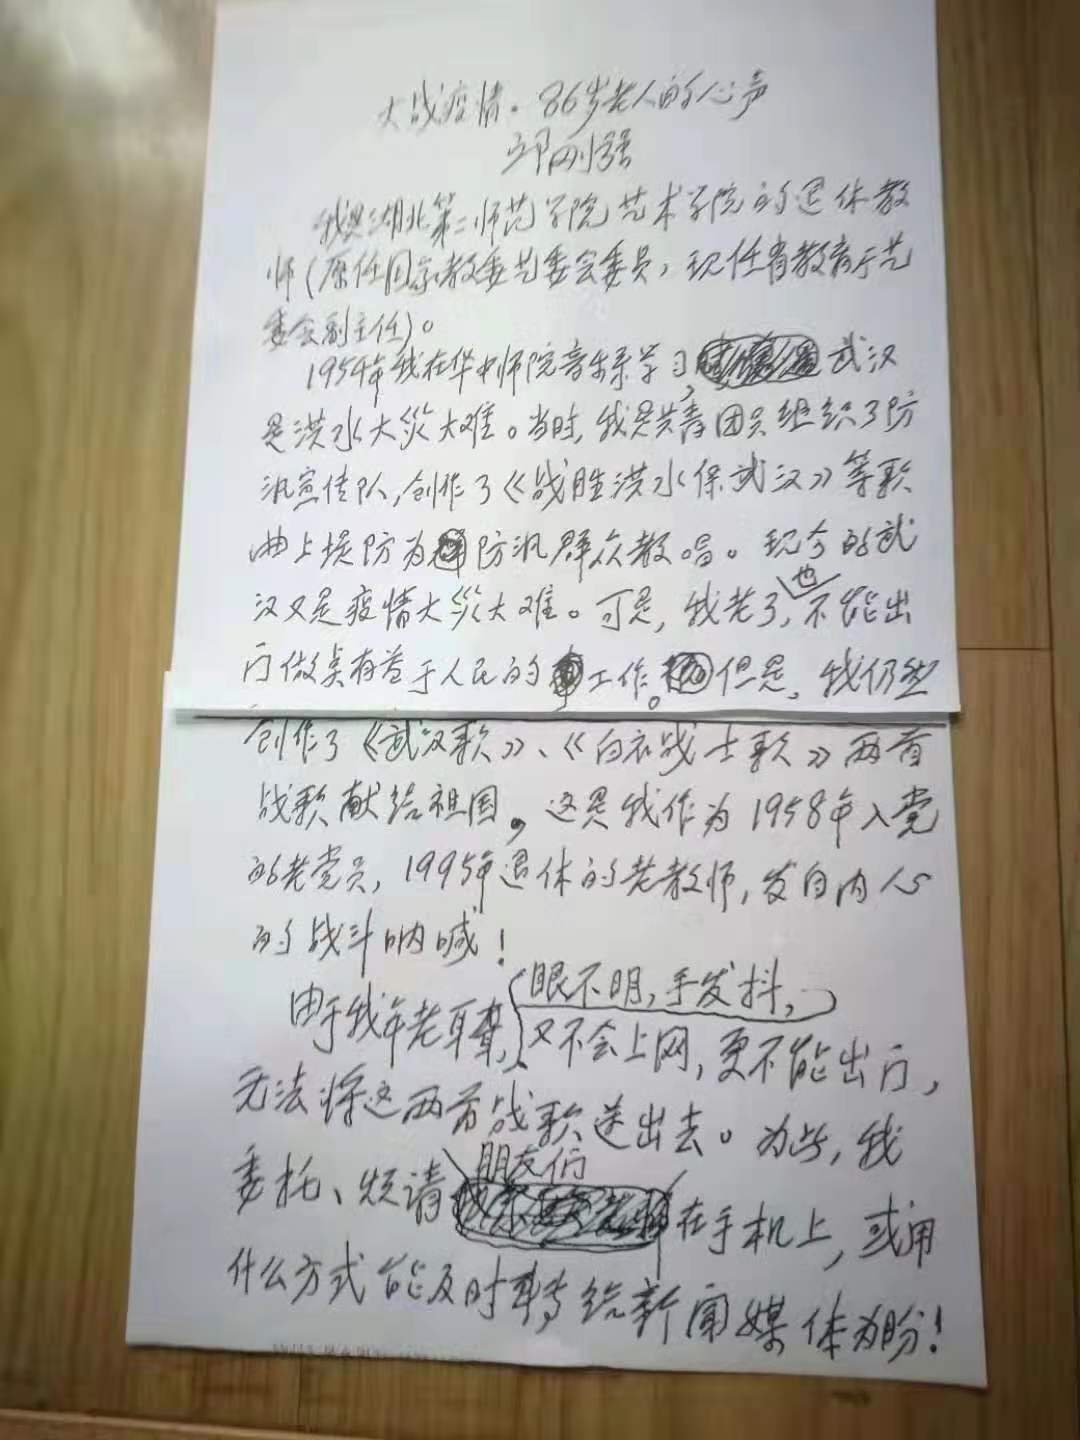 大战疫情·86岁老人的心声
邹刚强
我是湖北第二师范学院艺术学院的退休教
师(原任国家教委艺委会委员,现任省教育厅艺
委会副主任)。
1954年我在华中师院音乐系学习,武汉
是洪水大災大难。当时,我是共青团员组织了防
汛宣传队,创作了《战胜洪水保武汉》等歌
曲上堤防为防汛群众教唱。现今的武
汉又是疫情大災大难。可是,我老了,也不能出
门做点有益于人民的工作。但是,我仍然
创作了《武汉歌》、《白衣战士歌》两首
战歌献给祖国,这是我作为1958年入党
的老党员,1995年退休的老教师,发自内心
的战斗呐喊!
由于我年老耳聋,眼不明,手发抖,
又不会上网,更不能出门,
无法将这两首战歌送出去。为此,我
委托、烦请朋友们在手机上,或用
什么方式能及时转给新闻媒体为盼!